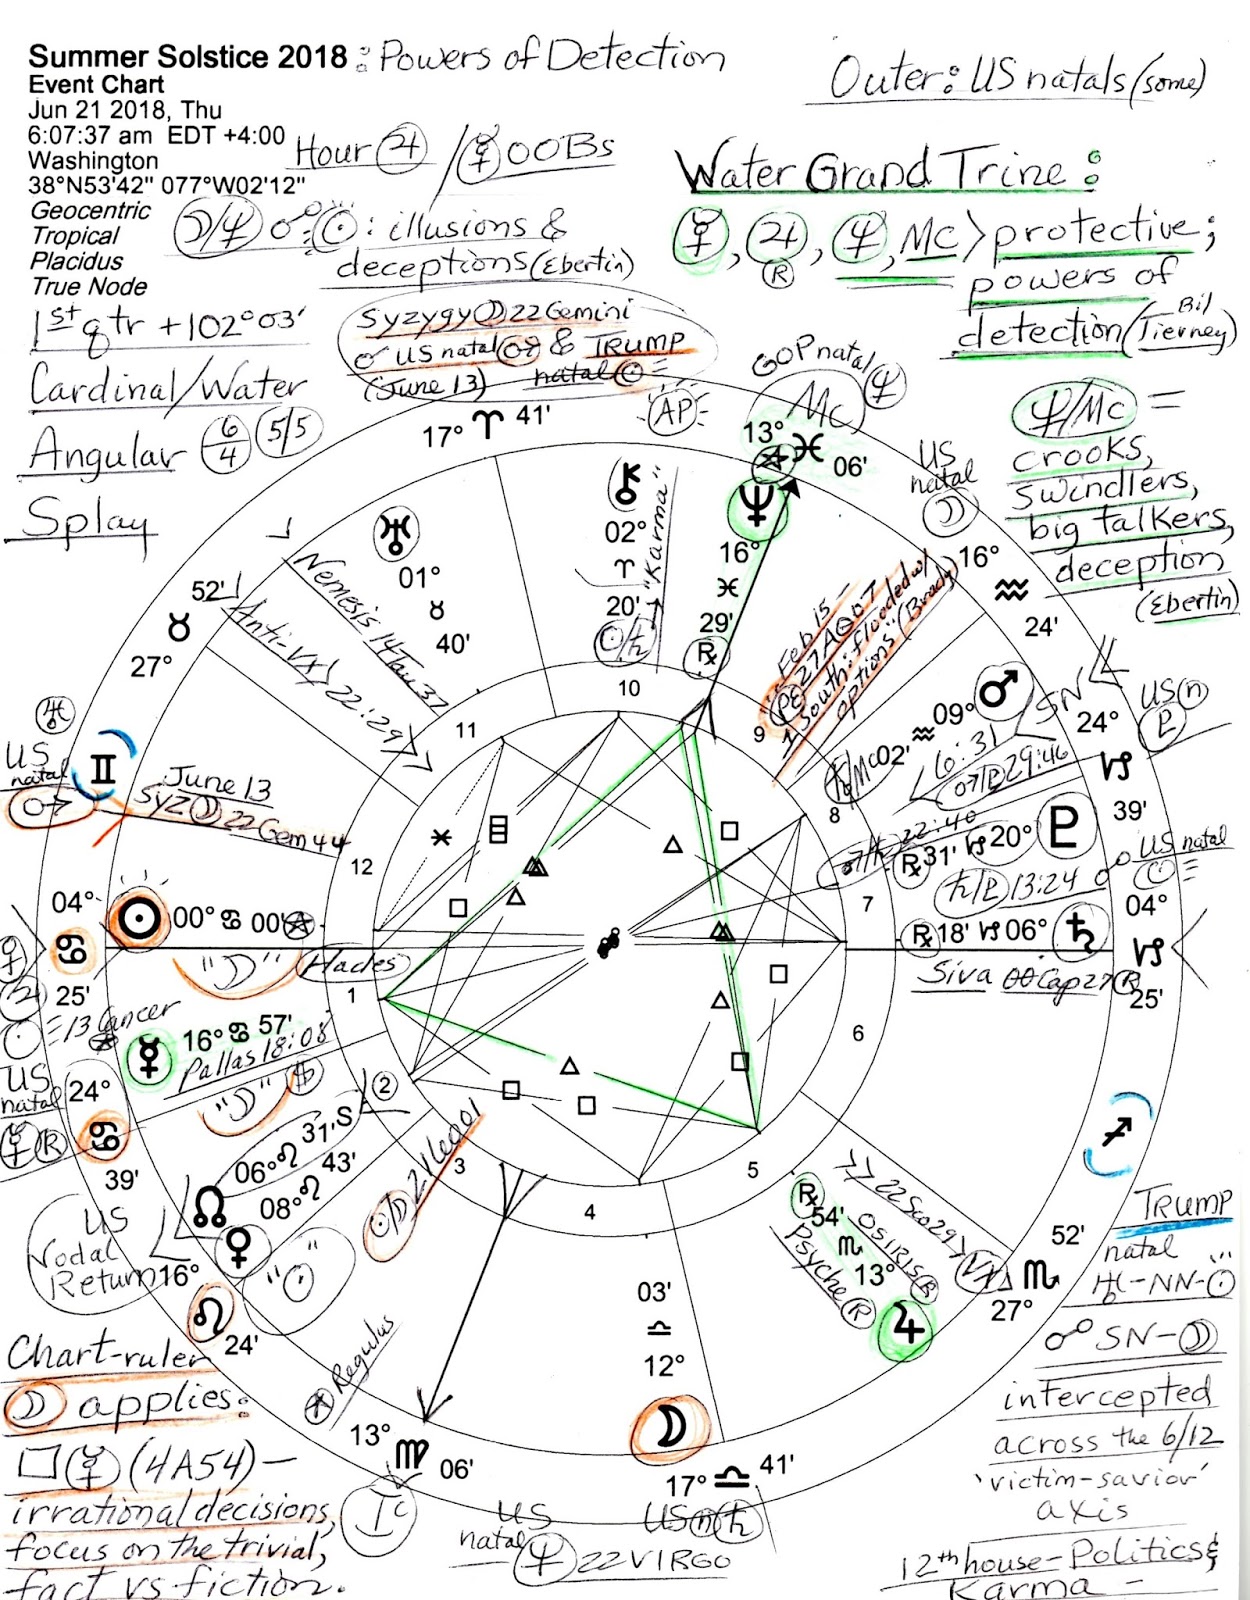 Summer Solstice 2018 : Powers of Detection
Event Chart
Jun 21 2018, Thu
6:07:37 am EDT +4:00
Washington
38°N53'42" 077°W02'12"
Geocentric
Tropical
Placidus
True Node
Outer: US natals (some)
Hour ♃ / ☿ OOBs
☽/♆ ☍ ☉: illusions &
deceptions (Ebertin)
Water Grand Trine:
☿, ♃, ♆, Mc > protective;
R
powers of
detection (Bil
Tierney)
1st qtr +102°03'
Cardinal/Water
Angular 6/4 5/5
Splay
Syzygy ☽ 22 Gemini
☌ US natal ♂ & TRUMP
(June 13) natal ☉
AP
GOP natal ♆
Mc
♆/Mc =
crooks,
swindlers,
big talkers,
deception
(Ebertin)
17° ♈ 41'
13° ♓ 06'
US
natal
☽
16° ♒ 24'
⚷ 02° ♈ 20'
"Karma"
☉/♄
♆ 16° ♓ 29' ℞
♅ 01° ♉ 40'
Nemesis 14Tau37
Anti-Vx 22:29
52' ♉ 27°
Feb 15
PE 27AQ07
South: 'flooded w/
options' (Brady)
♂ 09° ♒ 02'
SN 6:31
24° ♑ 39'
US (n)
♇
♇ 20° ♑ 31' ℞
22:40
♄/♇ 13:24
US natal
☉
04° ♑ 25'
♄ 06° ♑ 18' ℞
Siva 00Cap27 R
♅
US
natal
♂
♊
June 13
SYZ ☽ 22 Gem 44
04° ♋ 25'
☉ 00° ♋ 00'
"☽"
Hades
13 Cancer
☿ 16° ♋ 57'
Pallas 18:08
"☽" $
US
natal
☿ R
24° ♋ 39'
☊ 06° ♌ 31' S
♀ 08° ♌ 43'
"☉"
☉/☽ 21Leo01
US
Nodal
Return
16° ♌ 24'
Regulus
10
11
9
12
8
7
1
6
2
3
5
4
♐
03' ♎ 12°
☽
℞ 54' ♏ 13° ♃
Psyche R
OSIRIS R
22Sco29
Vx
52' ♏ 27°
TRUMP
natal
♅-NN-☉
☍ SN-☽
intercepted
across the 6/12
'victim-savior'
axis
12th house- Politics &
Karma -
Chart-ruler
☽ applies:
□ ☿ (4A54) –
irrational decisions,
focus on the trivial,
fact vs fiction.
13° ♍ 06'
Ic
17° ♎ 41'
US
natal
♆ 22 VIRGO
US (n) ♄